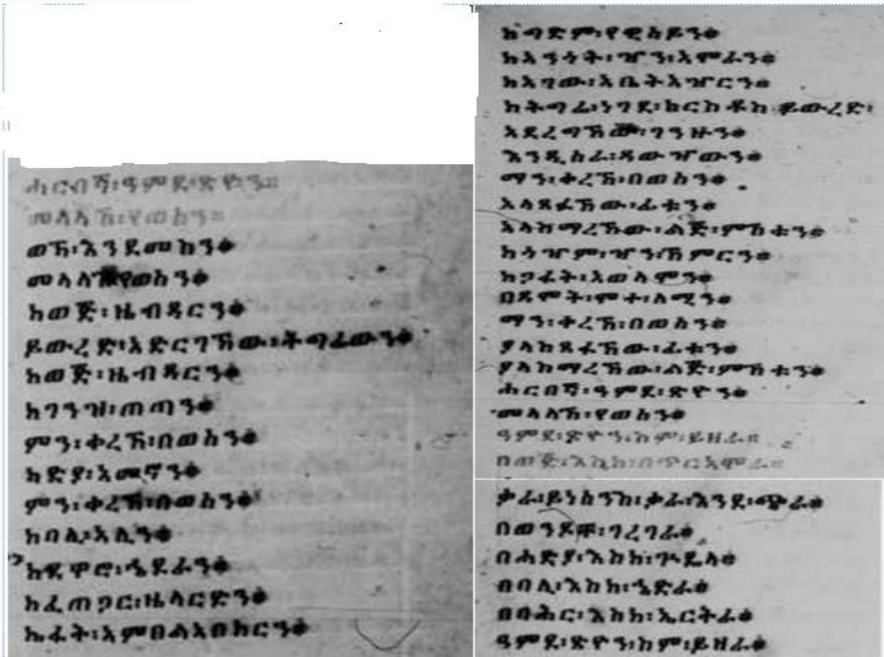 ሐርበኛ፡ዓምደ፡ጽዮን።
መላላሽ፡የወሰን።
ወኽ፡እንደመከን።
መላላሽ፡የወሰን።
ከወጅ፡ዜብዳርን።
ይውረድ፡አድርገኸው፡ትግሬውን።
ከወጅ፡ዜብዳርን።
ከገንዝ፡ጠጣን።
ምን፡ቀረኽ፡በወሰን።
ከድያ፡አመኖን።
ምን፡ቀረኽ፡በወሰን።
ከባሊ፡አሊን።
ከደዋሮ፡ኄደራን።
ከፈጠጋር፡ዜላርድን።
ኤፋት፡አምበልአበክርን።
ከግድም፡የዊሰይን።
ከአንጎት፡ዣን፡አሞራን።
ከአገው፡አቤትአዣርን።
ከትግሬ፡ነገደ፡ክርስቶስ፡ይውረድ፡
አደረግኸው፡ገንዙን።
እንዲሰራ፡ዳውዣውን።
ማን፡ቀረኽ፡በወሰን።
አላጸፋኸው፡ፊቱን።
አላስማረኸው፡ልጅ፡ምሽቱን።
ከጎዣም፡ዣን፡ኽምርን።
ከጋፋት፡አወላሞን።
በዳሞት፡ሞተ፡ለሚን።
ማን፡ቀረኽ፡በወሰን።
ያላስጸፋኸው፡ፊቱን።
ያላስማረኸው፡ልጅ፡ምሽቱን።
ሐርበኛ፡ዓምደ፡ጽዮን።
መላላሽ፡የወሰን።
ዓምደ፡ጽዮን፡ከም፡ይዘራ።
በወጅ፡እኪክ፡በጥር፡አሞራ።
ቃራ፡ይነሰንክ፡ቃራ፡እንደ፡ጭራ።
በወንዶቹ፡ገረገራ።
በሐድያ፡እከክ፡ጉዴላ።
በባሊ፡እከክ፡ኄድራ።
በባሕር፡እከክ፡ኤርትራ።
ዓምደ፡ጽዮን፡ከም፡ይዘራ።